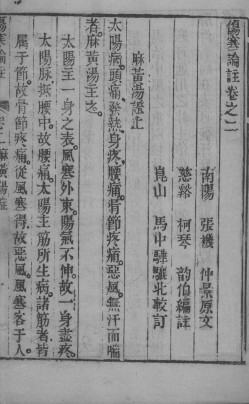 傷寒論註卷之二
南陽 張機 仲景原文
慈谿 柯琴 韵伯編註
崑山 馬中驊驤北較訂
麻黃湯證上
太陽病頭痛發熱身疼腰痛骨節疼痛惡風無汗而喘
者麻黃湯主之
太陽主一身之表風寒外束陽氣不伸故一身盡疼
太陽脉抵腰中故腰痛太陽主筋所生病諸筋者皆
属于節故骨節疼痛從風寒得故惡風風寒客于人